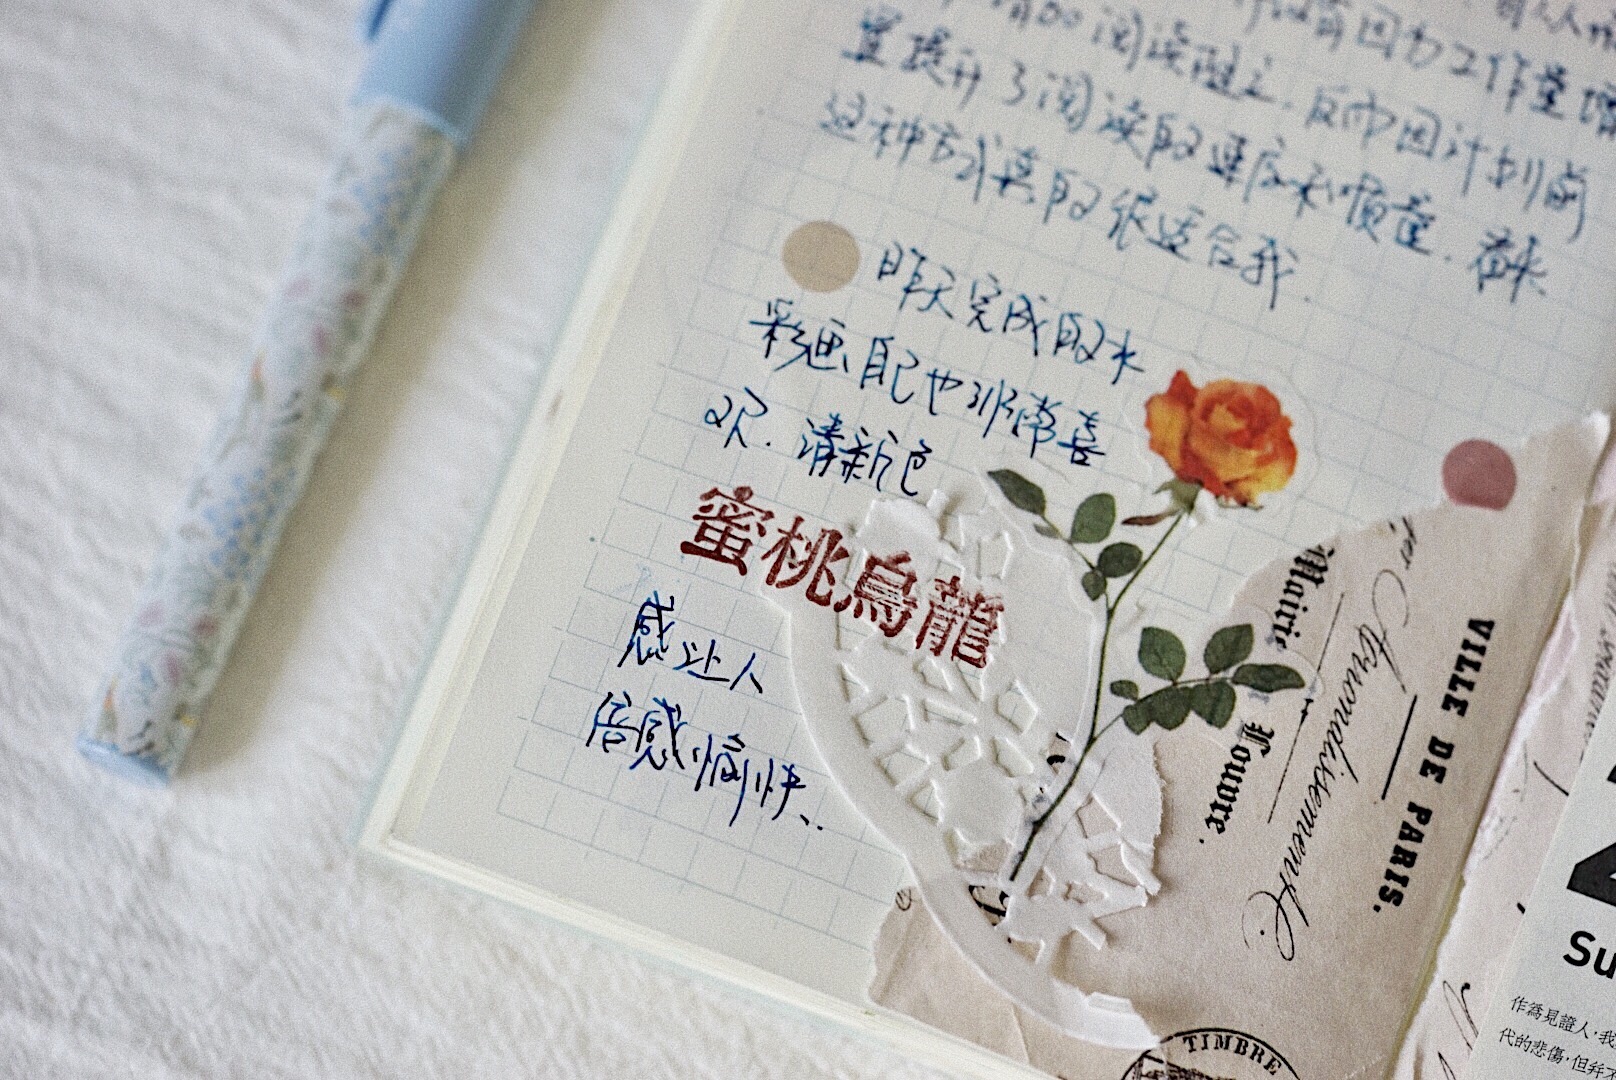 阅读
前因为工作量增
量提升了阅读的速度和质量.看来
反而因计划前
这种方式真的很适合我.
昨天完成的水
彩画自己也非常喜
欢.清新的
蜜桃烏龍
感让人
倍感愉快..
Mairie
Louvre.
Arrondissement.
VILLE DE PARIS.
TIMBRE
Su
作為見證人,我
代的悲傷,但并不